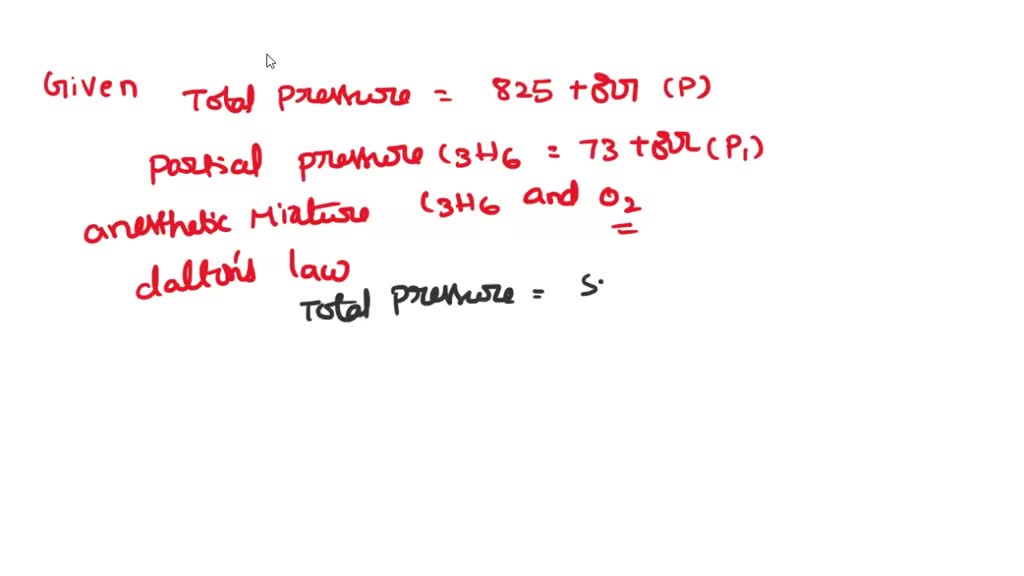 Given Total pressure = 825 torr (P)
Partial pressure C3H6 = 73 torr (P1)
anesthetic Mixture C3H6 and O2
dalton's law
Total pressure = S.